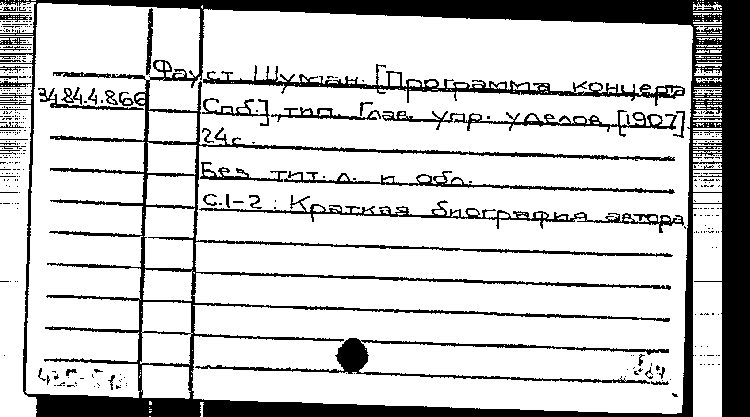 Фауст. Шуман. [Программа концерта
34.84.4.866
Спб.], тип. Глав. упр. уделов, [1907]
24с.
Без тит. л. и обл.
с.1-2: Краткая биография автора